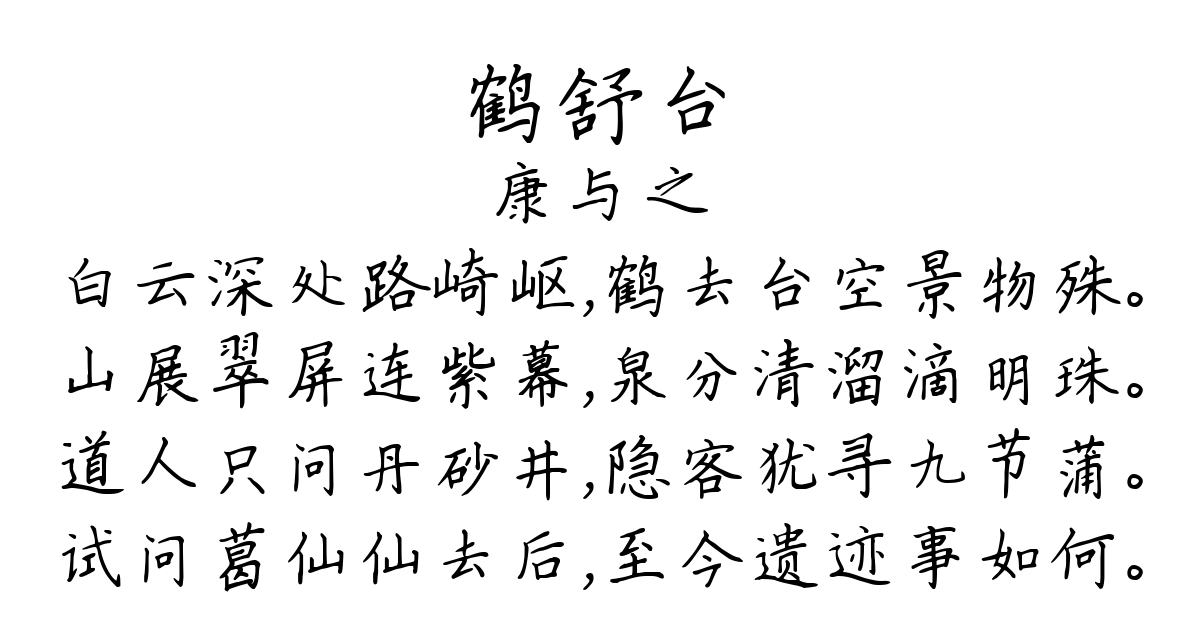 鹤舒台
康与之
白云深处路崎岖,鹤去台空景物殊。
山展翠屏连紫幕,泉分清溜滴明珠。
道人只问丹砂井,隐客犹寻九节蒲。
试问葛仙仙去后,至今遗迹事如何。